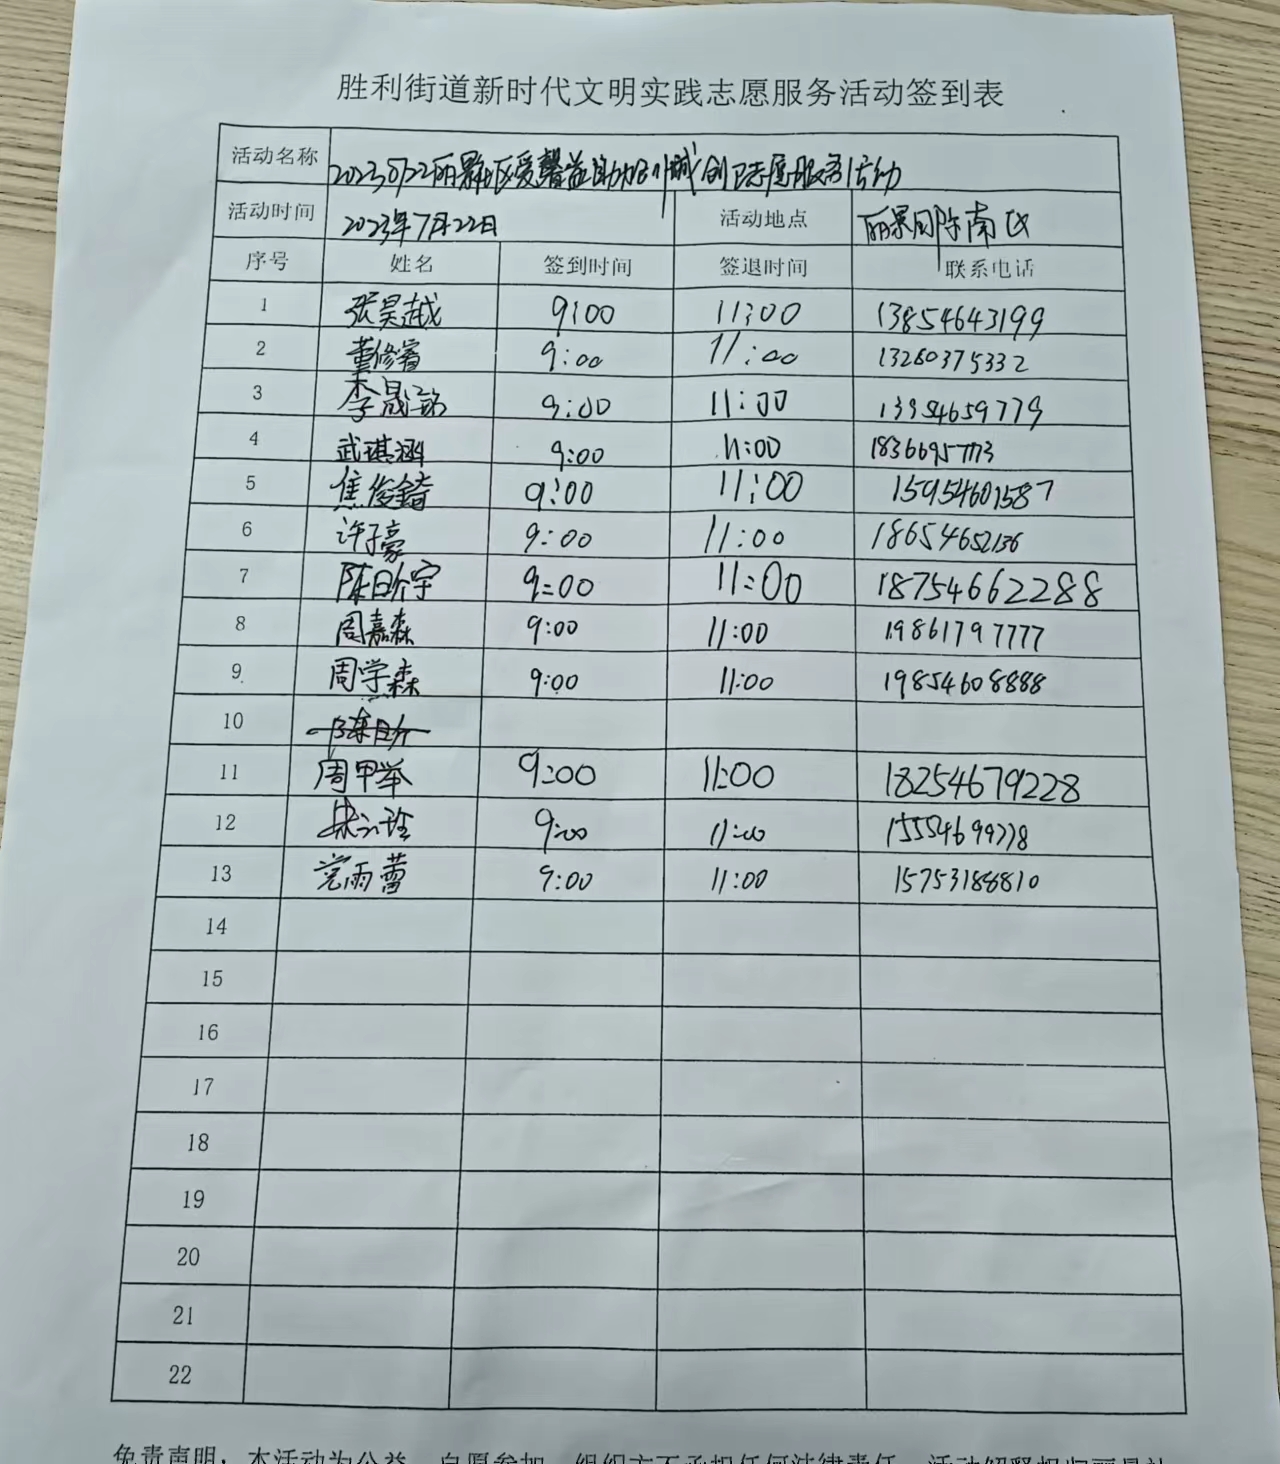 胜利街道新时代文明实践志愿服务活动签到表
活动名称 20230722丽景社区爱馨益助力创城创卫志愿服务活动
活动时间 2023年7月22日 活动地点 丽景周际南区
序号 姓名 签到时间 签退时间 联系电话
1 张昊越 9:00 11:00 13854643199
2 董修睿 9:00 11:00 13280375332
3 李晟铭 9:00 11:00 13954659779
4 武琪涵 9:00 11:00 18366957773
5 焦俊錡 9:00 11:00 15954601587
6 许子豪 9:00 11:00 18654652136
7 陈曰介宇 9:00 11:00 18754662288
8 周嘉森 9:00 11:00 19861797777
9 周学森 9:00 11:00 19854608888
10
11 周甲举 9:00 11:00 18254679228
12 9:00 11:00 15554699778
13 寇雨蕾 9:00 11:00 15753188810
14
15
16
17
18
19
20
21
22
免责声明：本活动为公益、自愿参加，组织方不承担任何法律责任，活动解释权归丽景社